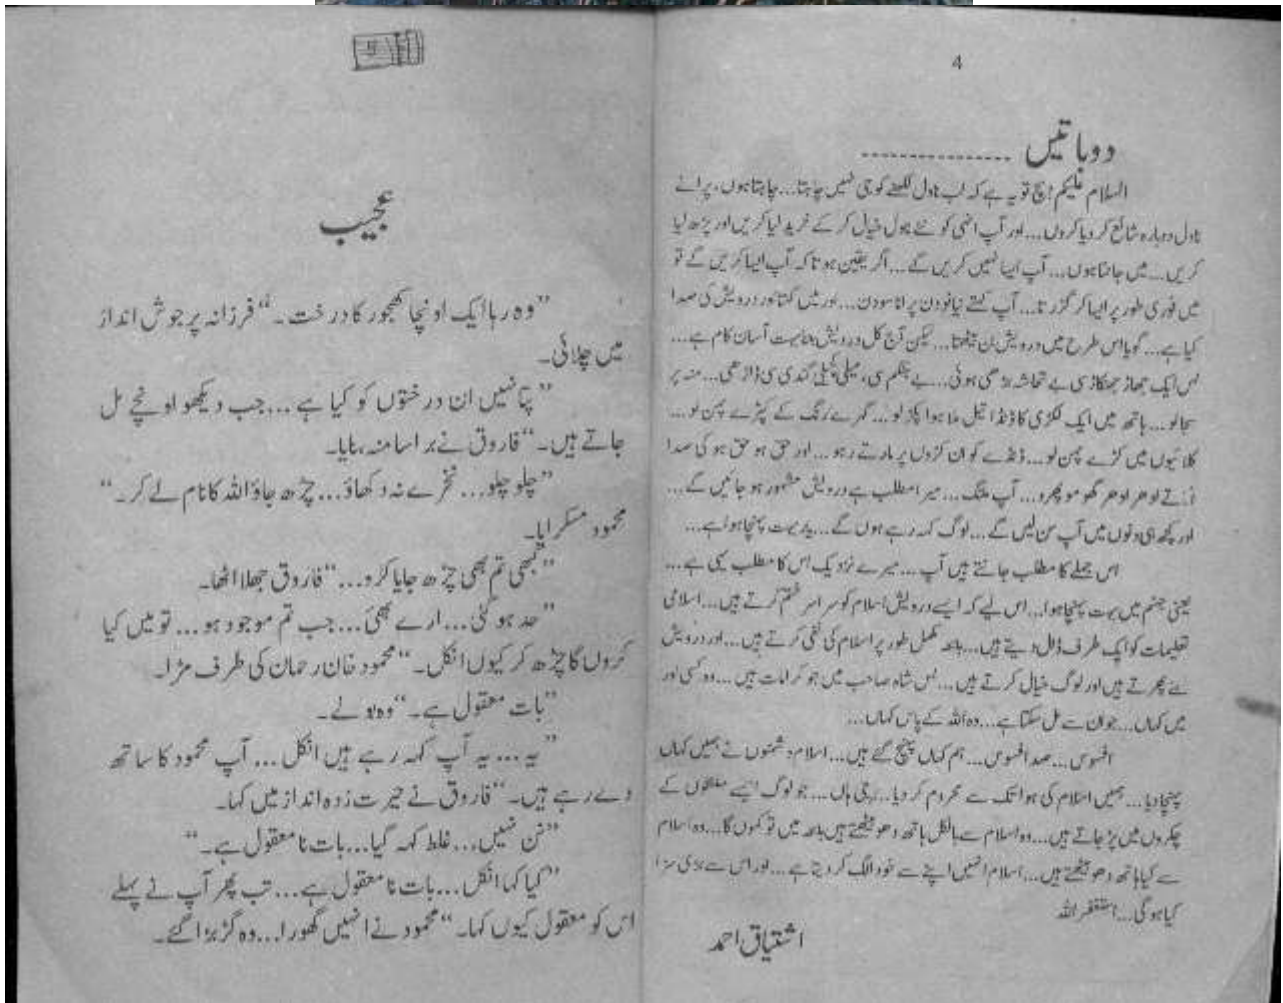 4
دو باتیں ----------------
السلام علیکم! سچ تو یہ ہے کہ اب ناول لکھنے کو جی نہیں چاہتا... چاہتا ہوں، پرانے
ناول دوبارہ شائع کر دیا کروں... اور آپ انہی کو نئے ناول خیال کر کے خرید لیا کریں اور پڑھ لیا
کریں... میں جانتا ہوں... آپ ایسا نہیں کریں گے... اگر یقین ہوتا کہ آپ ایسا کریں گے تو
میں فوری طور پر ایسا کر گزرتا... آپ کہتے نیا نو دن پرانا سو دن... اور میں کہتا اور درویش کی صدا
کیا ہے... گویا اس طرح میں درویش بن بیٹھتا... لیکن آج کل درویش بننا بہت آسان کام ہے...
بس ایک جھاڑ جھنکاڑ سی بے تحاشہ بڑھی ہوئی... بے ہنگم سی، میلی کچیلی گندی سی ڈاڑھی... منہ پر
سجا لو... ہاتھ میں ایک لکڑی کا ڈنڈا تیل ملا ہوا پکڑ لو... گہرے رنگ کے کپڑے پہن لو...
کلائیوں میں کڑے پہن لو... ڈنڈے کو ان کڑوں پر مارتے رہو... اور حق ہو حق ہو کی صدا
ادھر ادھر گھومو پھرو... آپ ملنگ... میرا مطلب ہے درویش مشہور ہو جائیں گے...
اور کچھ ہی دنوں میں آپ سن لیں گے... لوگ کہہ رہے ہوں گے... یہ بہت پہنچا ہوا ہے...
اس جملے کا مطلب جانتے ہیں آپ... میرے نزدیک اس کا مطلب یہی ہے...
یعنی جہنم میں بہت پہنچا ہوا... اس لیے کہ ایسے درویش اسلام کو سراسر ختم کرتے ہیں... اسلامی
تعلیمات کو ایک طرف ڈال دیتے ہیں... بلکہ مکمل طور پر اسلام کی نفی کرتے ہیں... اور درویش
بنے پھرتے ہیں اور لوگ خیال کرتے ہیں... بس شاہ صاحب میں جو کرامات ہیں... وہ کسی اور
میں کہاں... جو ان سے مل سکتا ہے... وہ اللہ کے پاس کہاں...
افسوس... صد افسوس... ہم کہاں پہنچ گئے ہیں... اسلام دشمنوں نے ہمیں کہاں
پہنچا دیا... ہمیں اسلام کی ہوا تک سے محروم کر دیا... جی ہاں... جو لوگ ایسے ملنگوں کے
چکروں میں پڑ جاتے ہیں... وہ اسلام سے بالکل ہاتھ دھو بیٹھتے ہیں بلکہ میں تو کہوں گا... وہ اسلام
سے کیا ہاتھ دھو بیٹھتے ہیں... اسلام انہیں اپنے سے خود الگ کر دیتا ہے... اور اس سے بڑی سزا
کیا ہوگی... استغفر اللہ
اشتیاق احمد
عجیب
"وہ رہا ایک اونچا کھجور کا درخت۔" فرزانہ پرجوش انداز
میں چلائی۔
"پتا نہیں ان درختوں کو کیا ہے... جب دیکھو اونچے مل
جاتے ہیں۔" فاروق نے برا سا منہ بنایا۔
"چلو چلو... نخرے نہ دکھاؤ... چڑھ جاؤ اللہ کا نام لے کر۔"
محمود مسکرایا۔
"کبھی تم بھی چڑھ جایا کرو..." فاروق جھلا اٹھا۔
"حد ہو گئی... ارے بھئی... جب تم موجود ہو... تو میں کیا
کروں گا چڑھ کر کیوں انکل۔" محمود خان رحمان کی طرف مڑا۔
"بات معقول ہے۔" وہ بولے۔
"یہ... یہ آپ کہہ رہے ہیں انکل... آپ محمود کا ساتھ
دے رہے ہیں۔" فاروق نے حیرت زدہ انداز میں کہا۔
"نن نہیں... غلط کہہ گیا... بات نامعقول ہے۔"
"کیا کہا انکل... بات نامعقول ہے... تب پھر آپ نے پہلے
اس کو معقول کیوں کہا۔" محمود نے انہیں گھورا... وہ گڑبڑا گئے۔